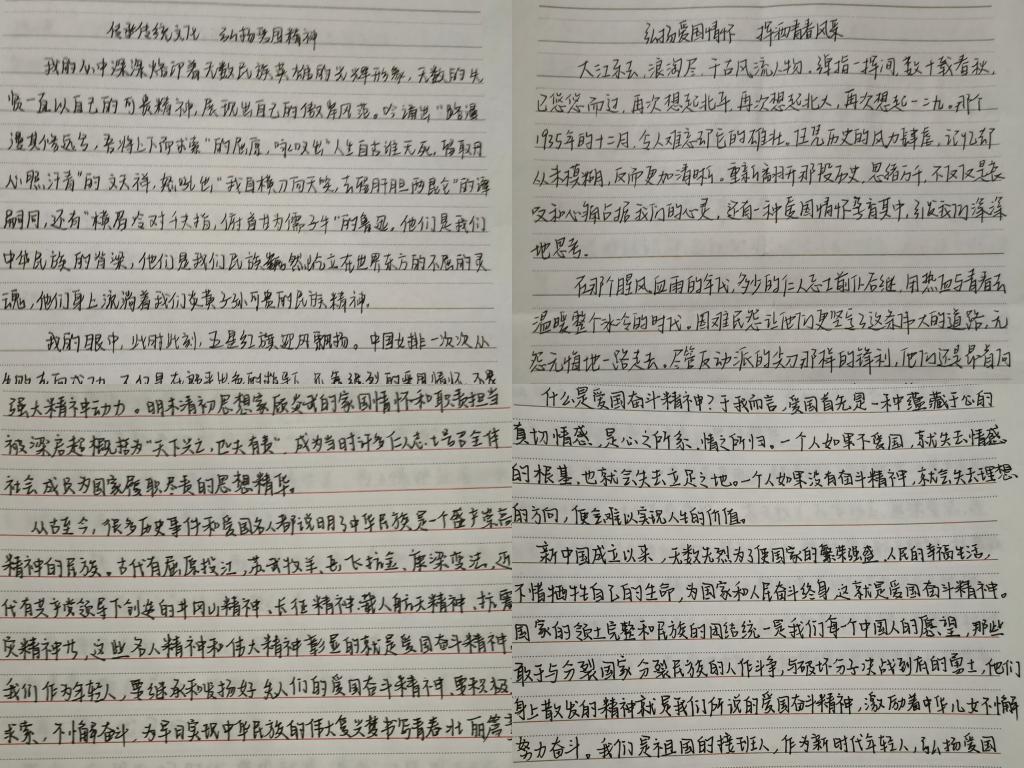 传承传统文化 弘扬爱国精神
我的心中深深烙印着无数民族英雄的光辉形象,无数的先
贤一直以自己的可贵精神,展现出自己的傲岸风范。吟诵出“路漫
漫其修远兮,吾将上下而求索”的屈原,咏叹出“人生自古谁无死,留取丹
心照汗青”的文天祥,怒吼出“我自横刀向天笑,去留肝胆两昆仑”的谭
嗣同,还有“横眉冷对千夫指,俯首甘为儒子牛”的鲁迅。他们是我们
中华民族的脊梁,他们是我们民族巍然屹立在世界东方的不屈的灵
魂,他们身上流淌着我们炎黄子孙可贵的民族精神。
我的眼中,此时此刻,五星红旗迎风飘扬。中国女排一次次从
强大精神动力。明末清初思想家顾炎武的家国情怀和职责担当
被梁启超概括为“天下兴亡,匹夫有责”,成为当时许多仁人志士号召全体
社会成员为国家履职尽责的思想精华。
从古至今,很多历史事件和爱国名人都说明了中华民族是一个盛产崇高
精神的民族。古代有屈原投江、苏武牧羊、岳飞抗金、康梁变法,近
代有共产党领导下创建的井冈山精神、长征精神、载人航天精神、抗震
灾精神等,这些名人精神和伟大精神彰显的就是爱国奋斗精神
我们作为年轻人,要继承和发扬好先人们的爱国奋斗精神,要积极
求索,不懈奋斗,为早日实现中华民族的伟大复兴梦书写青春壮丽篇章
弘扬爱国情怀 挥洒青春风采
大江东去,浪淘尽,千古风流人物。弹指一挥间,数十载春秋,
已悠悠而过,再次想起北平,再次想起北大,再次想起一二九。那个
1935年的十二月,令人难忘却它的雄壮。任凭历史的风力肆虐,记忆却
从未模糊,反而更加清晰。重新翻开那段历史,思绪万千,不仅仅是哀
叹和心痛占据我们的心灵,还有一种爱国情怀孕育其中,引发我们深深
地思考。
在那个腥风血雨的年代,多少的仁人志士前仆后继,用热血与青春去
温暖整个冰冷的时代。困难民怨让他们更坚定了这条伟大的道路,无
怨无悔地一路走去。尽管反动派的尖刀那样的锋利,他们还是昂首向
什么是爱国奋斗精神?于我而言,爱国首先是一种蕴藏于心的
真切情感,是心之所系、情之所归。一个人如果不爱国,就失去情感
的根基,也就会失去立足之地。一个人如果没有奋斗精神,就会失去理想
的方向,便会难以实现人生的价值。
新中国成立以来,无数先烈为了使国家的繁荣强盛、人民的幸福生活,
不惜牺牲自己的生命,为国家和人民奋斗终身,这就是爱国奋斗精神。
国家的领土完整和民族的团结统一是我们每个中国人的愿望,那些
敢于与分裂国家分裂民族的人作斗争,与破坏分子决战到底的勇士,他们
身上散发的精神就是我们所说的爱国奋斗精神,激励着中华儿女不懈
努力奋斗。我们是祖国的接班人,作为新时代年轻人,弘扬爱国